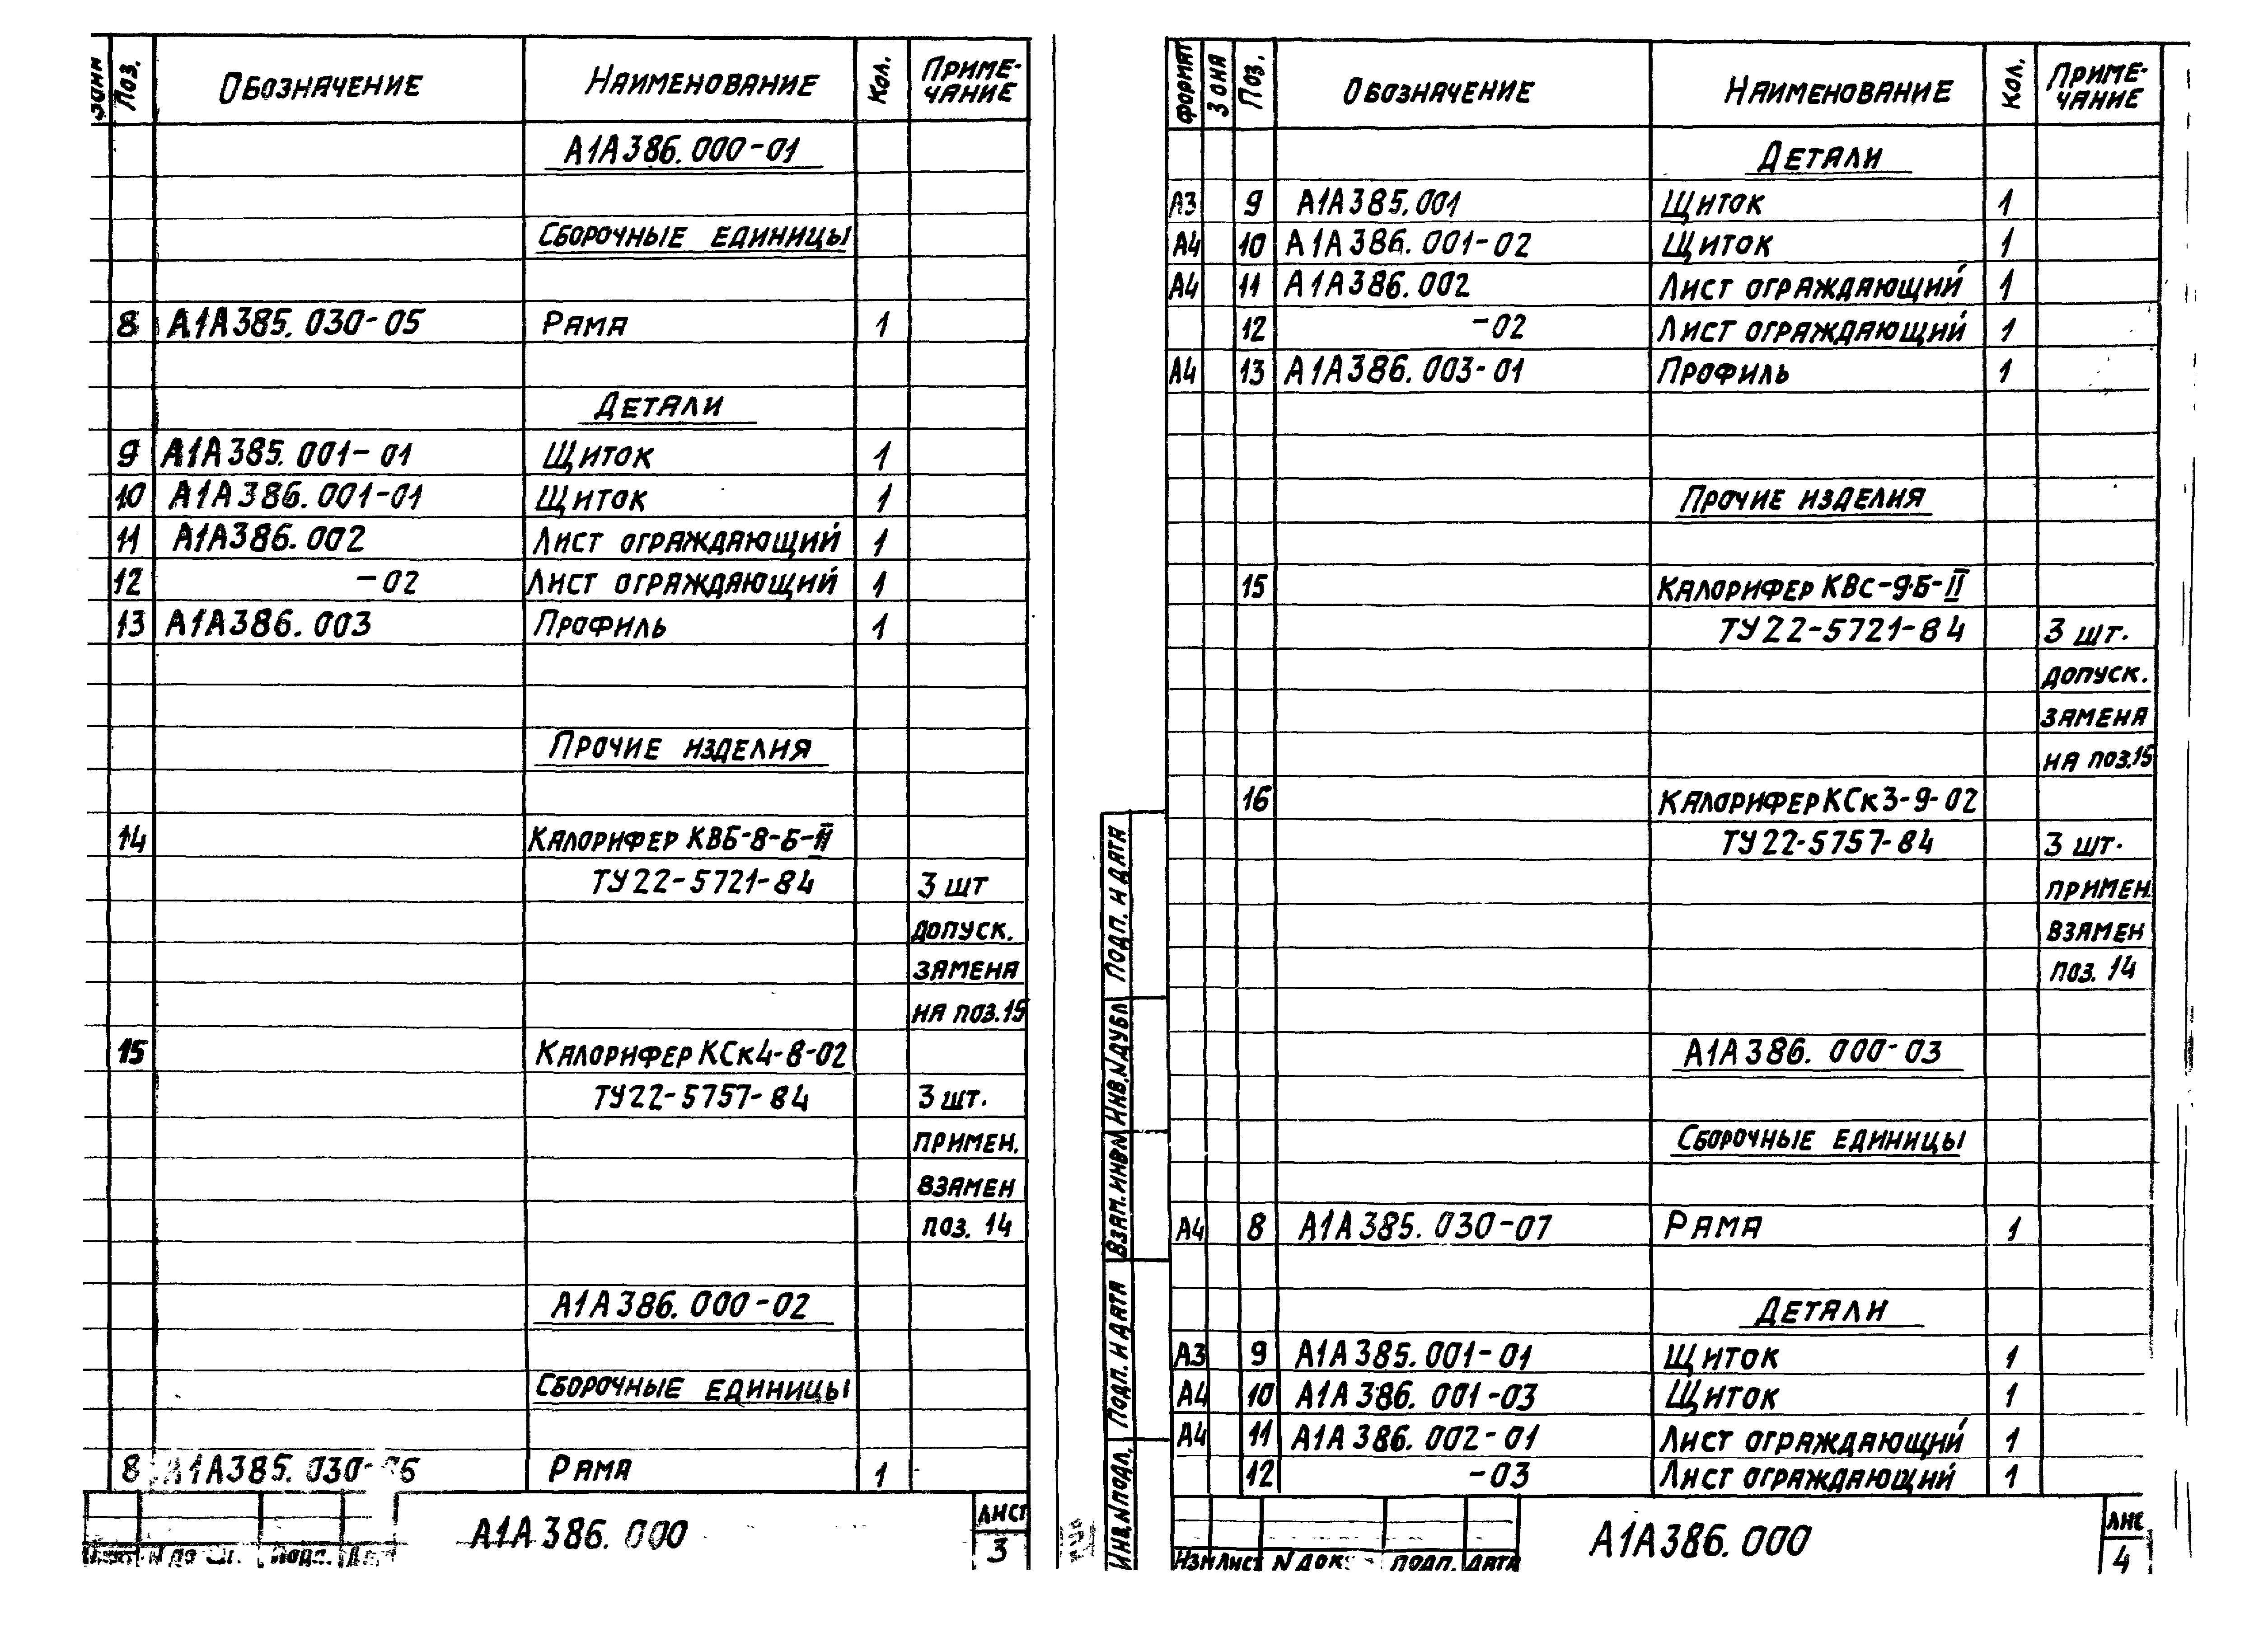 Зона Поз. Обозначение Наименование Кол. Приме-
чание
А1А386.000-01
Сборочные единицы
8 А1А385.030-05 Рама 1
Детали
9 А1А385.001-01 Щиток 1
10 А1А386.001-01 Щиток 1
11 А1А386.002 Лист ограждающий 1
12 -02 Лист ограждающий 1
13 А1А386.003 Профиль 1
Прочие изделия
14 Калорифер КВБ-8-Б-II
ТУ22-5721-84 3 шт
допуск.
замена
на поз.15
15 Калорифер КСк4-8-02
ТУ22-5757-84 3 шт.
примен.
взамен
поз. 14
А1А386.000-02
Сборочные единицы
8 А1А385.030-06 Рама 1
N док. Подп.
А1А386.000
Лист
3
Формат Зона Поз. Обозначение Наименование Кол. Приме-
чание
Детали
А3 9 А1А385.001 Щиток 1
А4 10 А1А386.001-02 Щиток 1
А4 11 А1А386.002 Лист ограждающий 1
12 -02 Лист ограждающий 1
А4 13 А1А386.003-01 Профиль 1
Прочие изделия
15 Калорифер КВС-9Б-II
ТУ22-5721-84 3 шт.
допуск.
замена
на поз.15
16 Калорифер КСк3-9-02
ТУ22-5757-84 3 шт.
примен.
взамен
поз. 14
А1А386.000-03
Сборочные единицы
А4 8 А1А385.030-07 Рама 1
Детали
А3 9 А1А385.001-01 Щиток 1
А4 10 А1А386.001-03 Щиток 1
А4 11 А1А386.002-01 Лист ограждающий 1
12 -03 Лист ограждающий 1
Подп. и дата
Инв.Nдубл
Взам.инвN
Подп. и дата
Инв.Nподл.
Изм Лист N док. подп. дата
А1А386.000
Лис
4